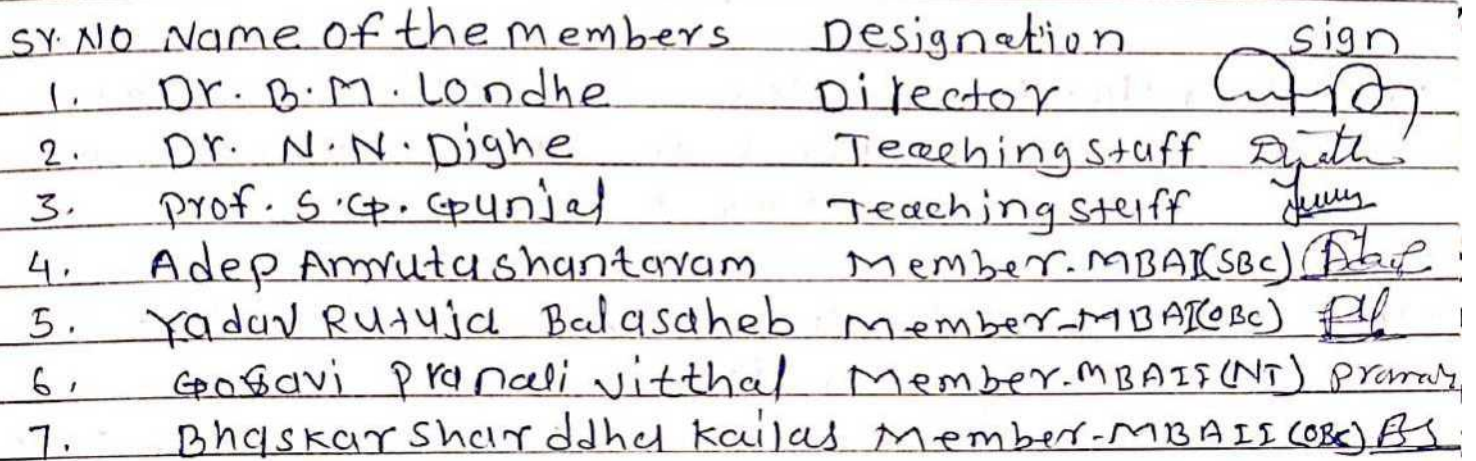 Sr. No Name of the members Designation sign
1. Dr. B.M. Londhe Director
2. Dr. N.N. Dighe Teaching staff
3. Prof. S.G. Gunjal Teaching staff
4. Adep Amruta shantaram Member. MBAI(SBC)
5. Yadav Rutuja Balasaheb Member-MBAI(OBC)
6. Gosavi Pranali Vitthal Member. MBAII(NT)
7. Bhaskar Sharddha Kailas Member-MBAII(OBC) BS